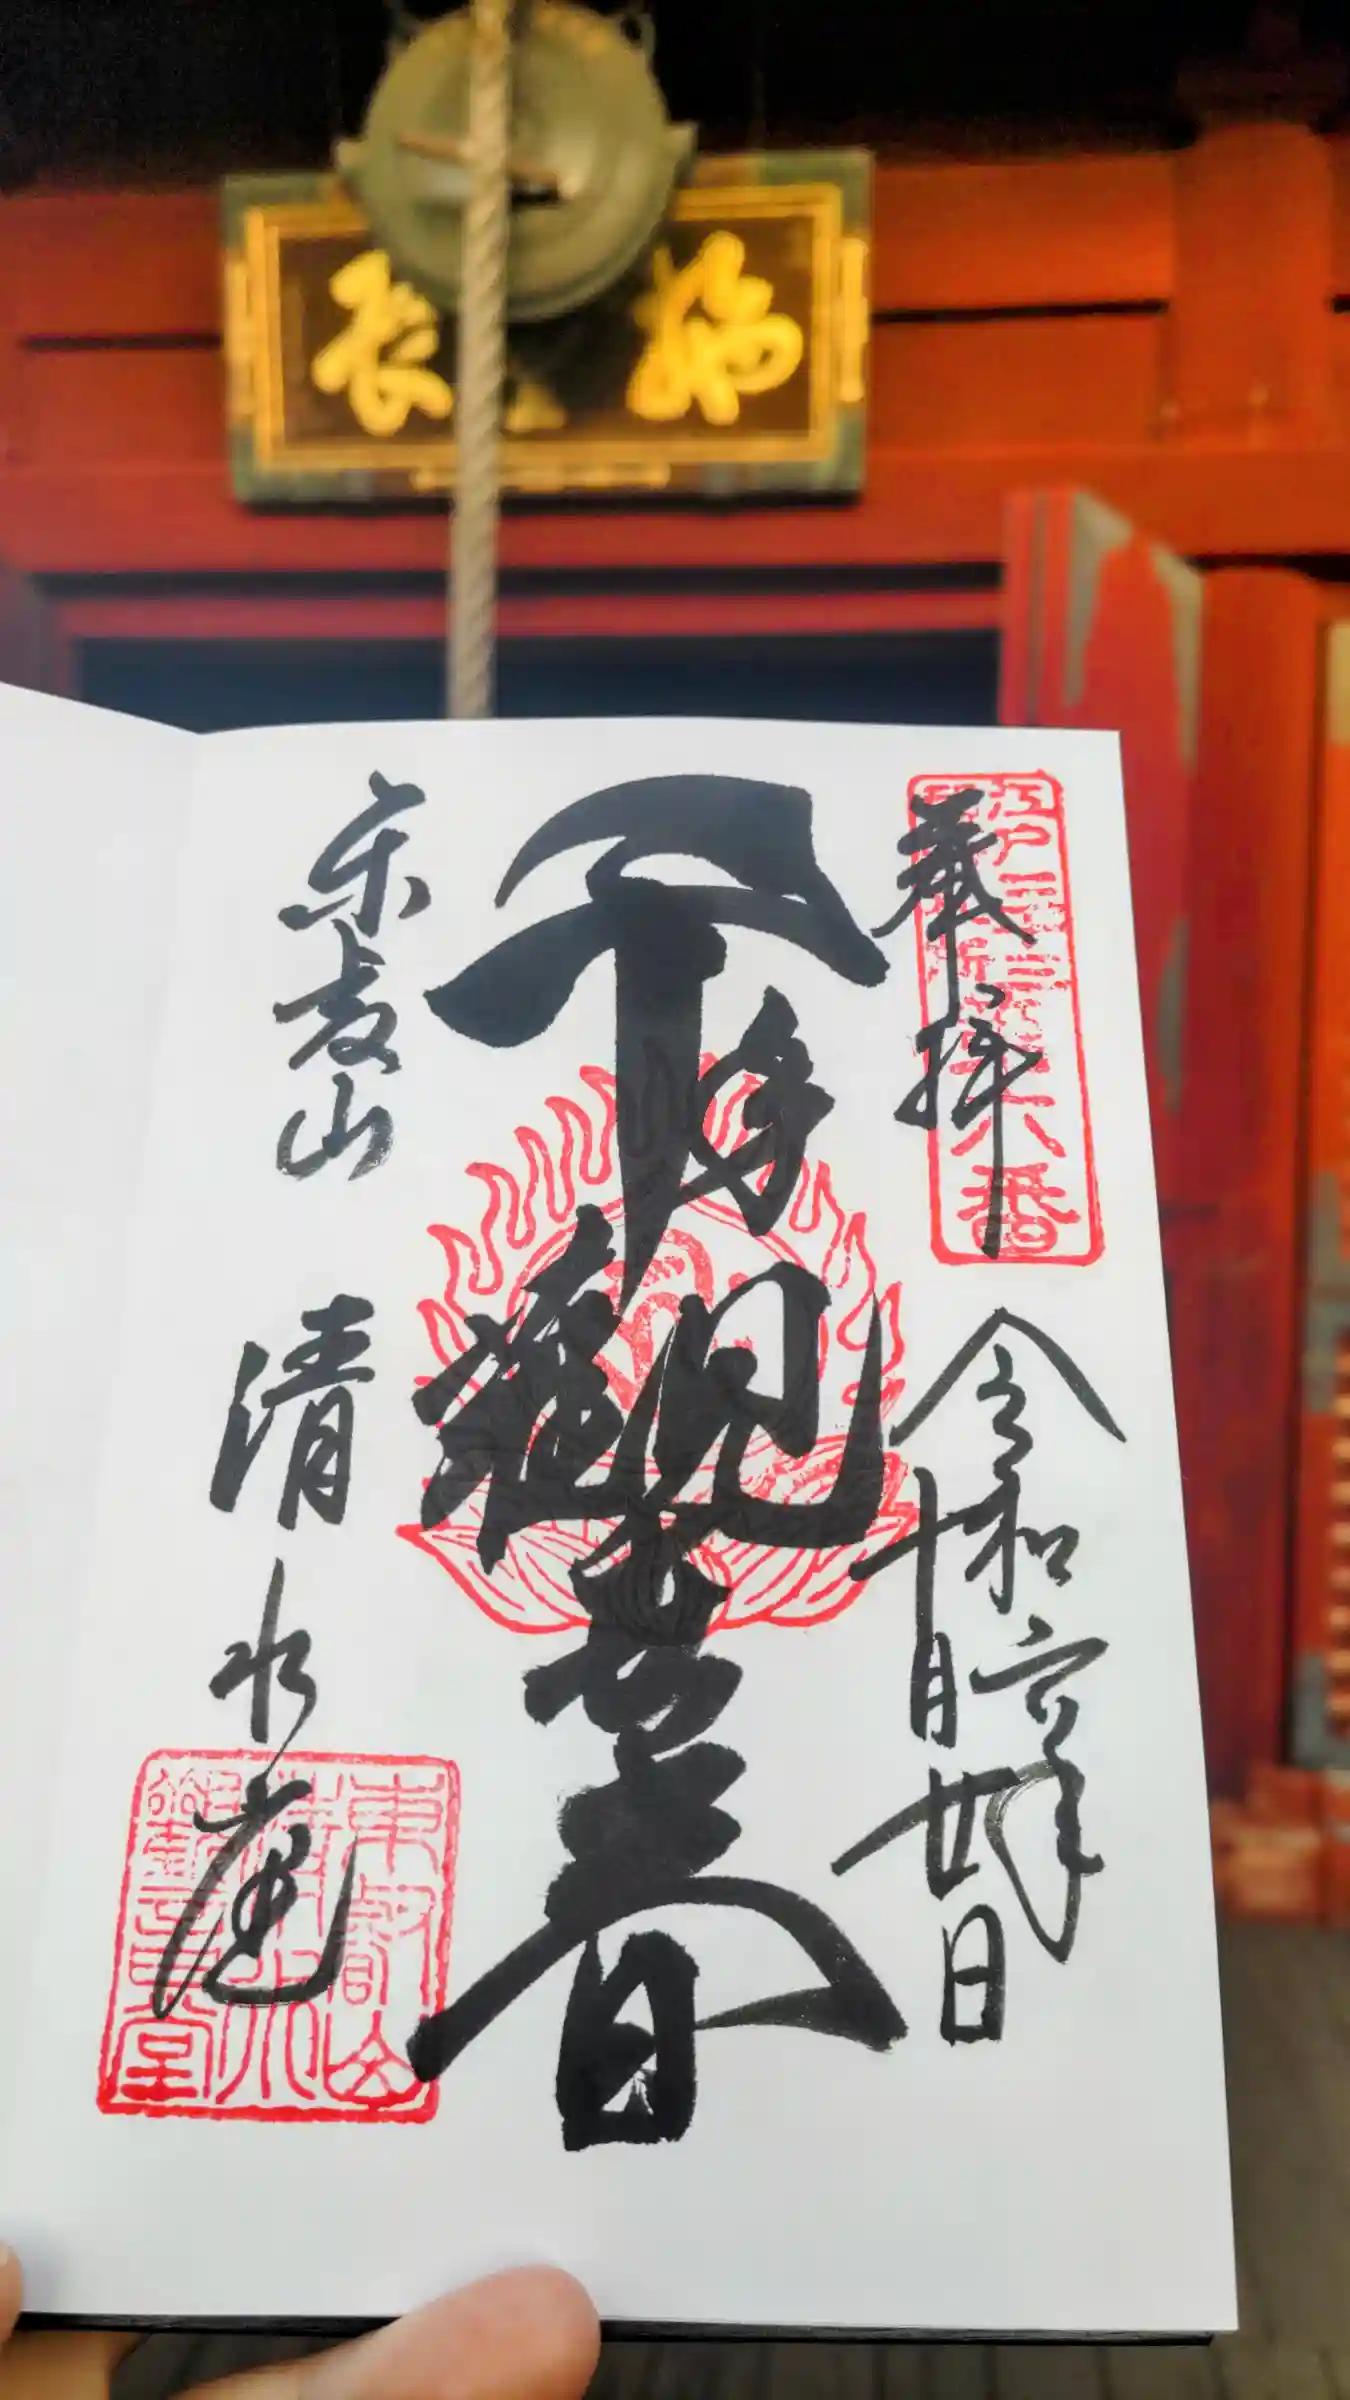 奉拝
令和
十月廿日
千手
観世音
東叡山
清水堂
江戸三
六番
東叡山
清水